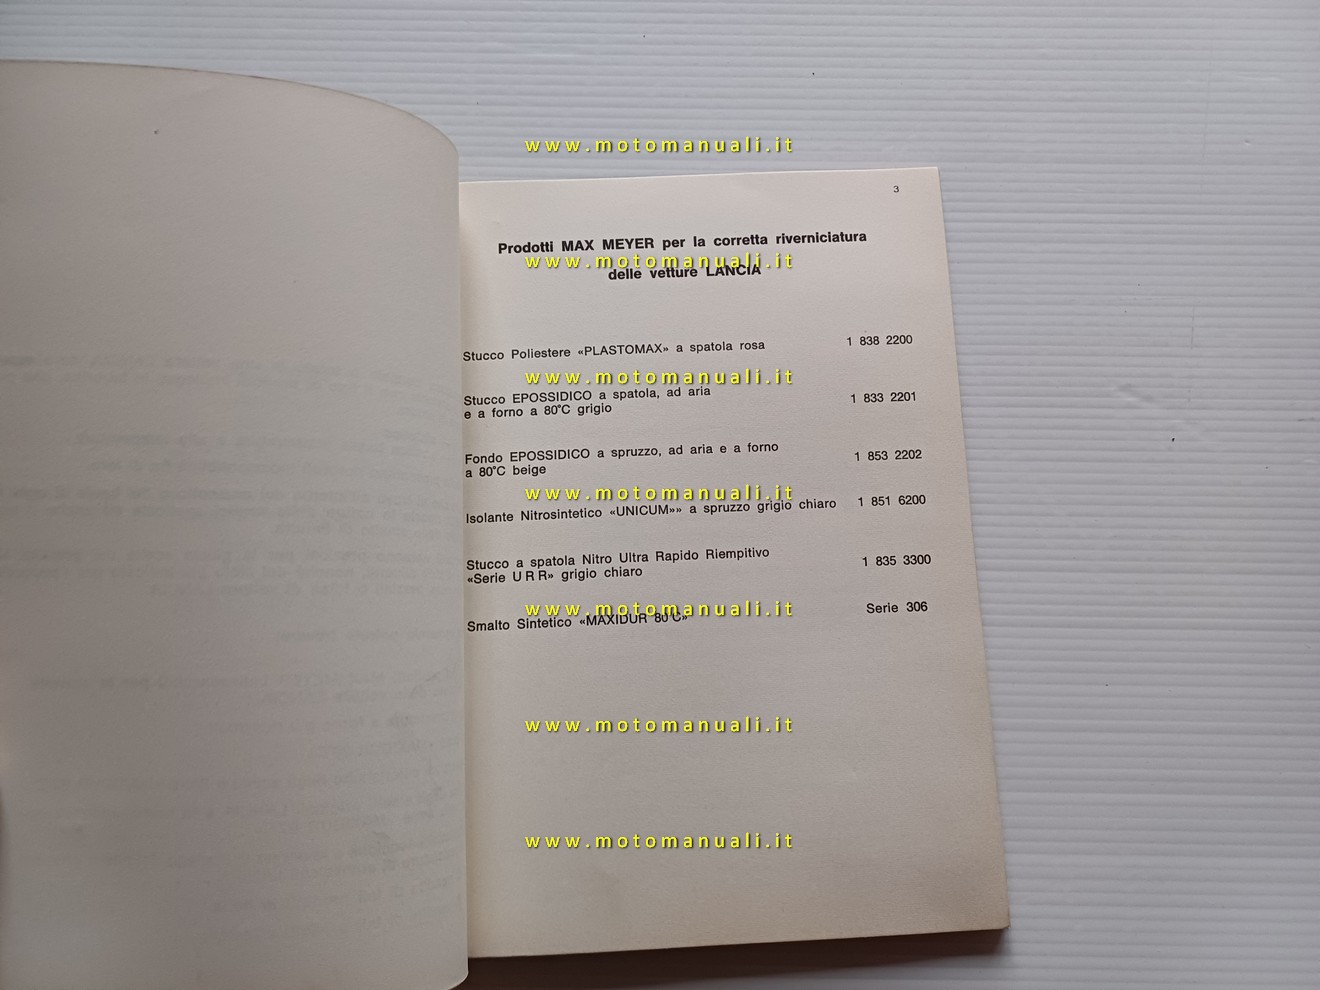 www.motomanuali.it
3
Prodotti MAX MEYER per la corretta riverniciatura
www.motomanuali.it
delle vetture LANCIA
Stucco Poliestere «PLASTOMAX» a spatola rosa 1 838 2200
www.motomanuali.it
Stucco EPOSSIDICO a spatola, ad aria
e a forno a 80°C grigio 1 833 2201
Fondo EPOSSIDICO a spruzzo, ad aria e a forno
a 80°C beige 1 853 2202
www.motomanuali.it
Isolante Nitrosintetico «UNICUM»» a spruzzo grigio chiaro 1 851 6200
Stucco a spatola Nitro Ultra Rapido Riempitivo
«Serie U R R» grigio chiaro 1 835 3300
www.motomanuali.it
Smalto Sintetico «MAXIDUR 80°C» Serie 306
www.motomanuali.it
www.motomanuali.it